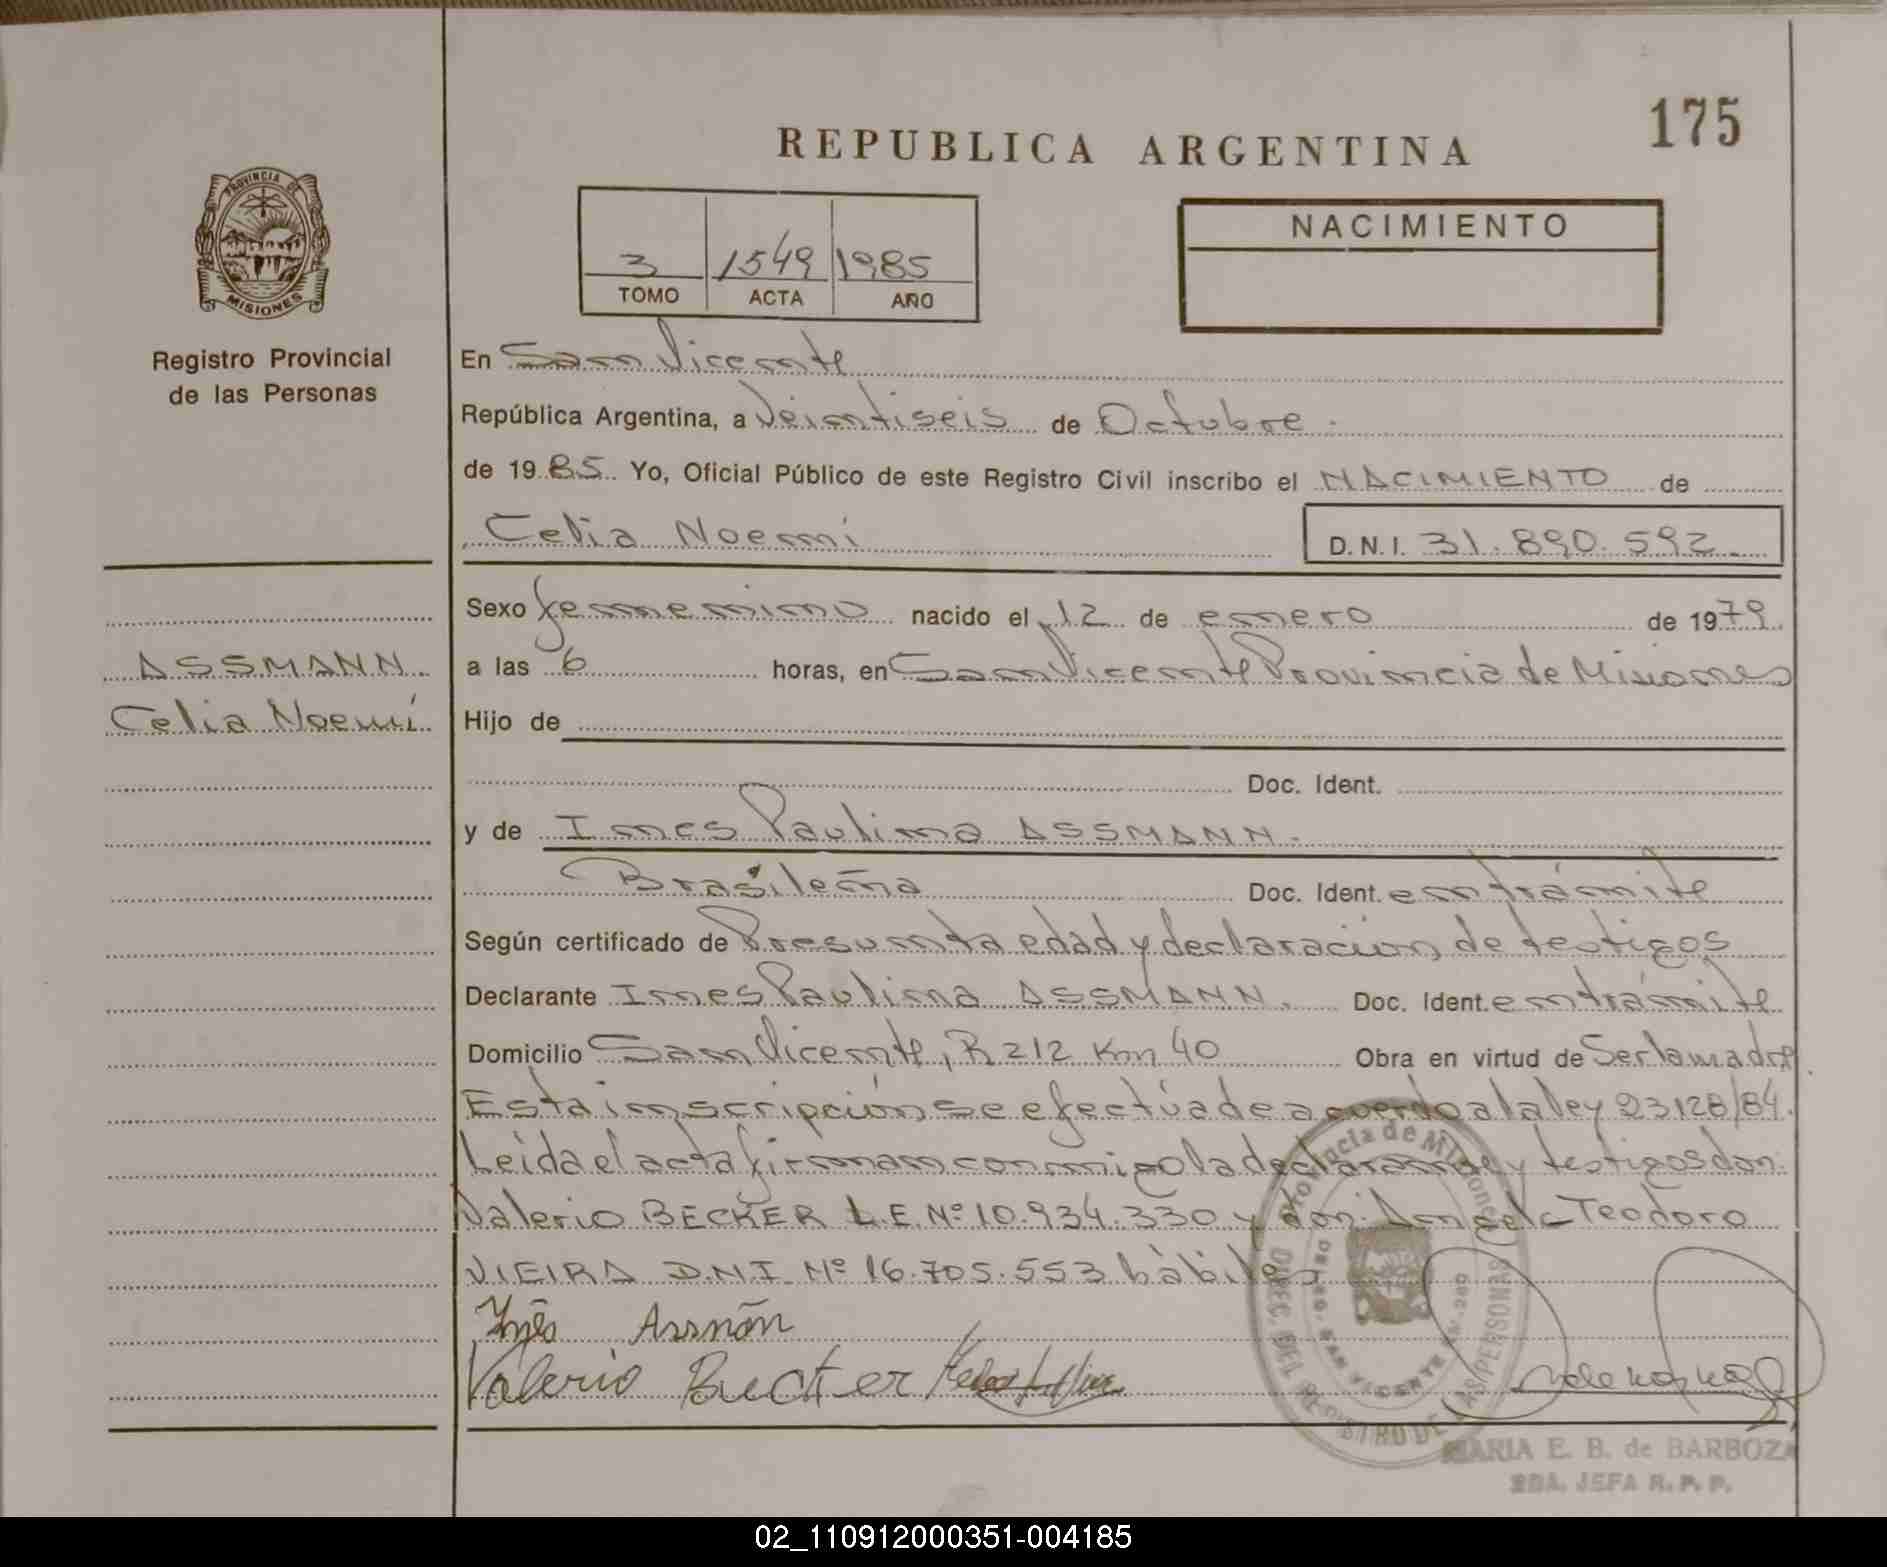 175
REPUBLICA ARGENTINA
PROVINCIA DE
MISIONES
Registro Provincial
de las Personas
3 1549 1985
TOMO ACTA AÑO
NACIMIENTO
En San Vicente
República Argentina, a Veintiseis de Octubre.
de 1985. Yo, Oficial Público de este Registro Civil inscribo el NACIMIENTO de
Celia Noemí
D.N.I. 31.890.592.
Sexo femenino nacido el 12 de enero de 1979
a las 6 horas, en San Vicente Provincia de Misiones
ASSMANN.
Celia Noemí
Hijo de
Doc. Ident.
y de Ines Paulina ASSMANN.
Brasileña Doc. Ident. en trámite
Según certificado de Presunta edad y declaración de testigos
Declarante Ines Paulina ASSMANN. Doc. Ident. en trámite
Domicilio San Vicente, R 212 Km 40 Obra en virtud de Ser la madre
Esta inscripción se efectúa de acuerdo a la ley 23128/84.
Leída el acta firman conmigo la declarante y testigos don:
Valerio BECKER L.E. Nº 10.934.330 y don: Angel Teodoro
VIEIRA D.N.I. Nº 16.705.553 hàbiles
Inês Assmãn
Valerio Becker
Provincia de Misiones
DIREC. DEL REGISTRO DE LAS PERSONAS
SAN VICENTE
MARIA E. B. de BARBOZA
2DA. JEFA R. P. P.
02_110912000351-004185